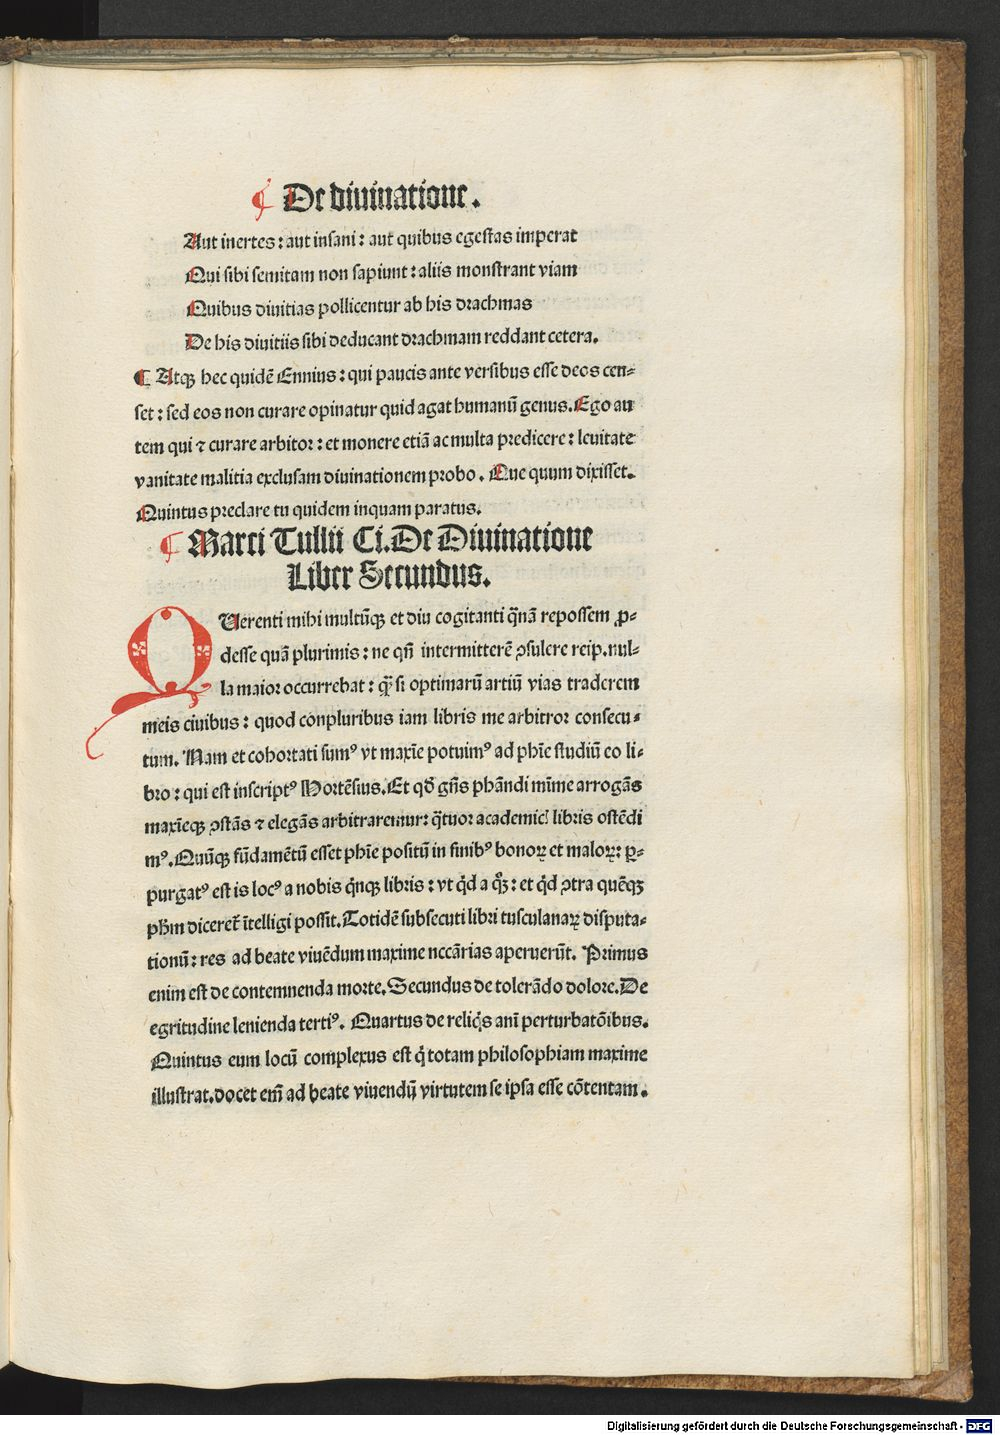 ¶ De diuinatione.
Aut inertes: aut insani: aut quibus egestas imperat
Qui sibi semitam non sapiunt: aliis monstrant viam
Quibus diuitias pollicentur ab his drachmas
De his diuitiis sibi deducant drachmam reddant cetera.
¶ Atqꝫ hec quidē Ennius: qui paucis ante versibus esse deos cen⸗
set: sed eos non curare opinatur quid agat humanū genus. Ego au
tem qui ⁊ curare arbitor: et monere etiā ac multa predicere: leuitate
vanitate malitia exclusam diuinationem probo. Que quum dixisset.
Quintus preclare tu quidem inquam paratus.
¶ Marci Tullii Ci. De Diuinatione
Liber Secundus.
QUerenti mihi multūqꝫ et diu cogitanti q̄nā re possem ꝓ⸗
desse quā plurimis: ne qn̄ intermitterē ꝯsulere reip. nul⸗
la maior occurrebat: qꝫ̄ si optimarū artiū vias traderem
meis ciuibus: quod conpluribus iam libris me arbitror consecu⸗
tum. Nam et cohortati sumꝰ vt maxīe potuimꝰ ad ph̄ie studiū eo li⸗
bro: qui est inscriptꝰ Hortēsius. Et qđ gn̄s phādi mīme arrogās
maxīeqꝫ ꝯstās ⁊ elegās arbitraremur: q̄tuor academicꝭ libris ostēdi
mꝰ. Quūqꝫ fūdamētū esset ph̄ie positū in finibꝰ bonoꝝ et maloꝝ: ꝑ⸗
purgatꝰ est is locꝰ a nobis q̄nqꝫ libris: vt q̇d a q̊ꝫ: et q̇d ꝯtra quēqꝫ
ph̄m diceret̄ ītelligi possit. Totidē subsecuti libri tusculanaꝝ disputa⸗
tionū: res ad beate viuēdum maxime nccārias aperuerūt. Primus
enim est de contemnenda morte. Secundus de tolerādo dolore. De
egritudine lenienda tertiꝰ. Quartus de reliq̇s anī perturbatōibus.
Quintus eum locū complexus est q̇ totam philosophiam maxime
illustrat. docet em̄ ad beate viuendū virtutem se ipsa esse cōtentam.
Digitalisierung gefördert durch die Deutsche Forschungsgemeinschaft - DFG